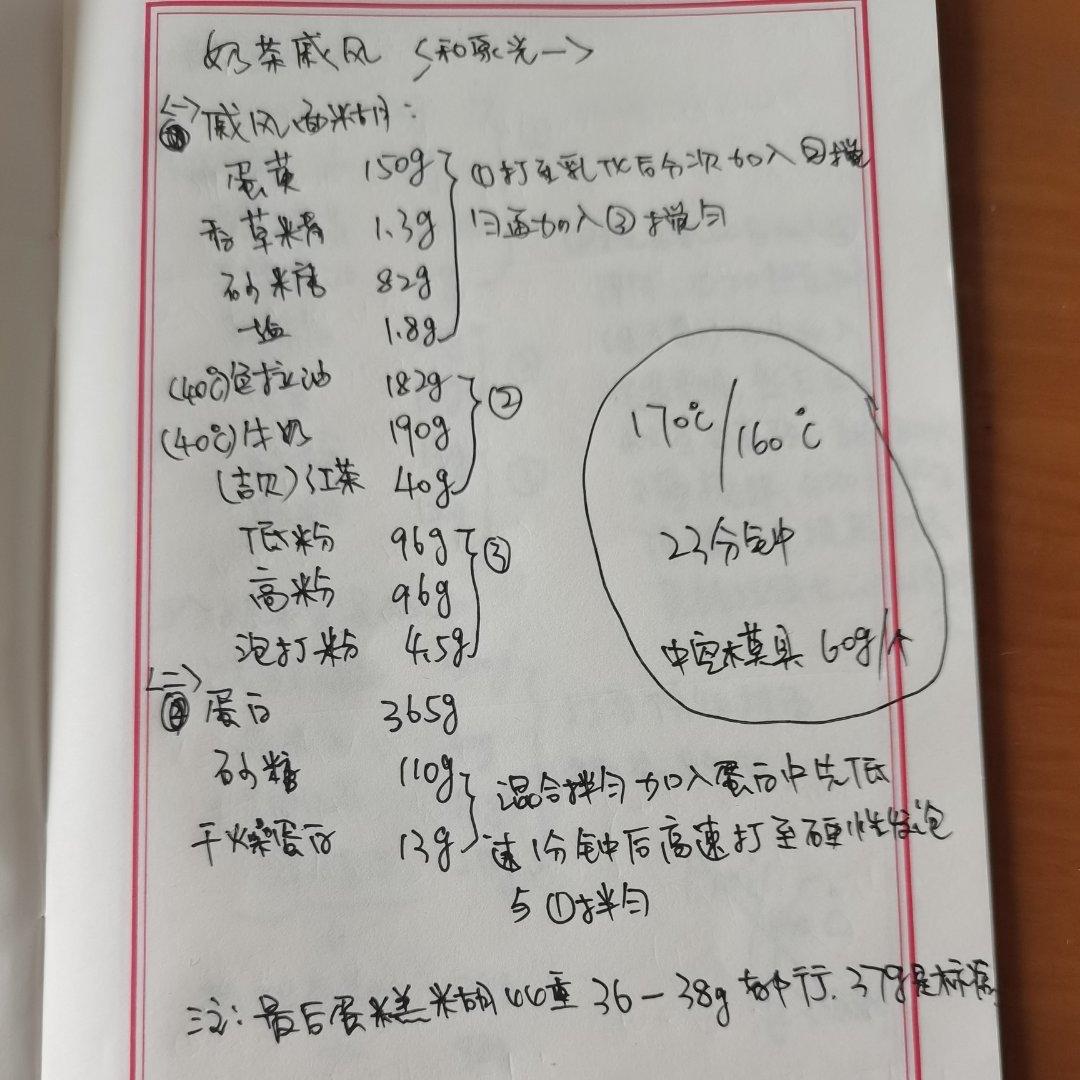 奶茶戚风 〈和泉光一〉
〈一〉戚风面糊:
蛋黄 150g ①打至乳化后分次加入②搅
香草精 1.3g 匀再加入③搅匀
砂糖 82g
盐 1.8g
(40℃)色拉油 182g ②
(40℃)牛奶 190g
(吉贝)红茶 40g
低粉 96g ③
高粉 96g
泡打粉 4.5g
170℃/160℃
23分钟
中空模具 60g/个
〈二〉蛋白 365g
砂糖 110g 混合拌匀加入蛋白中先低
干燥蛋白 13g 速1分钟后高速打至硬性发泡
与①拌匀
注:最后蛋糕糊比重 36-38g 都行. 37g是标准